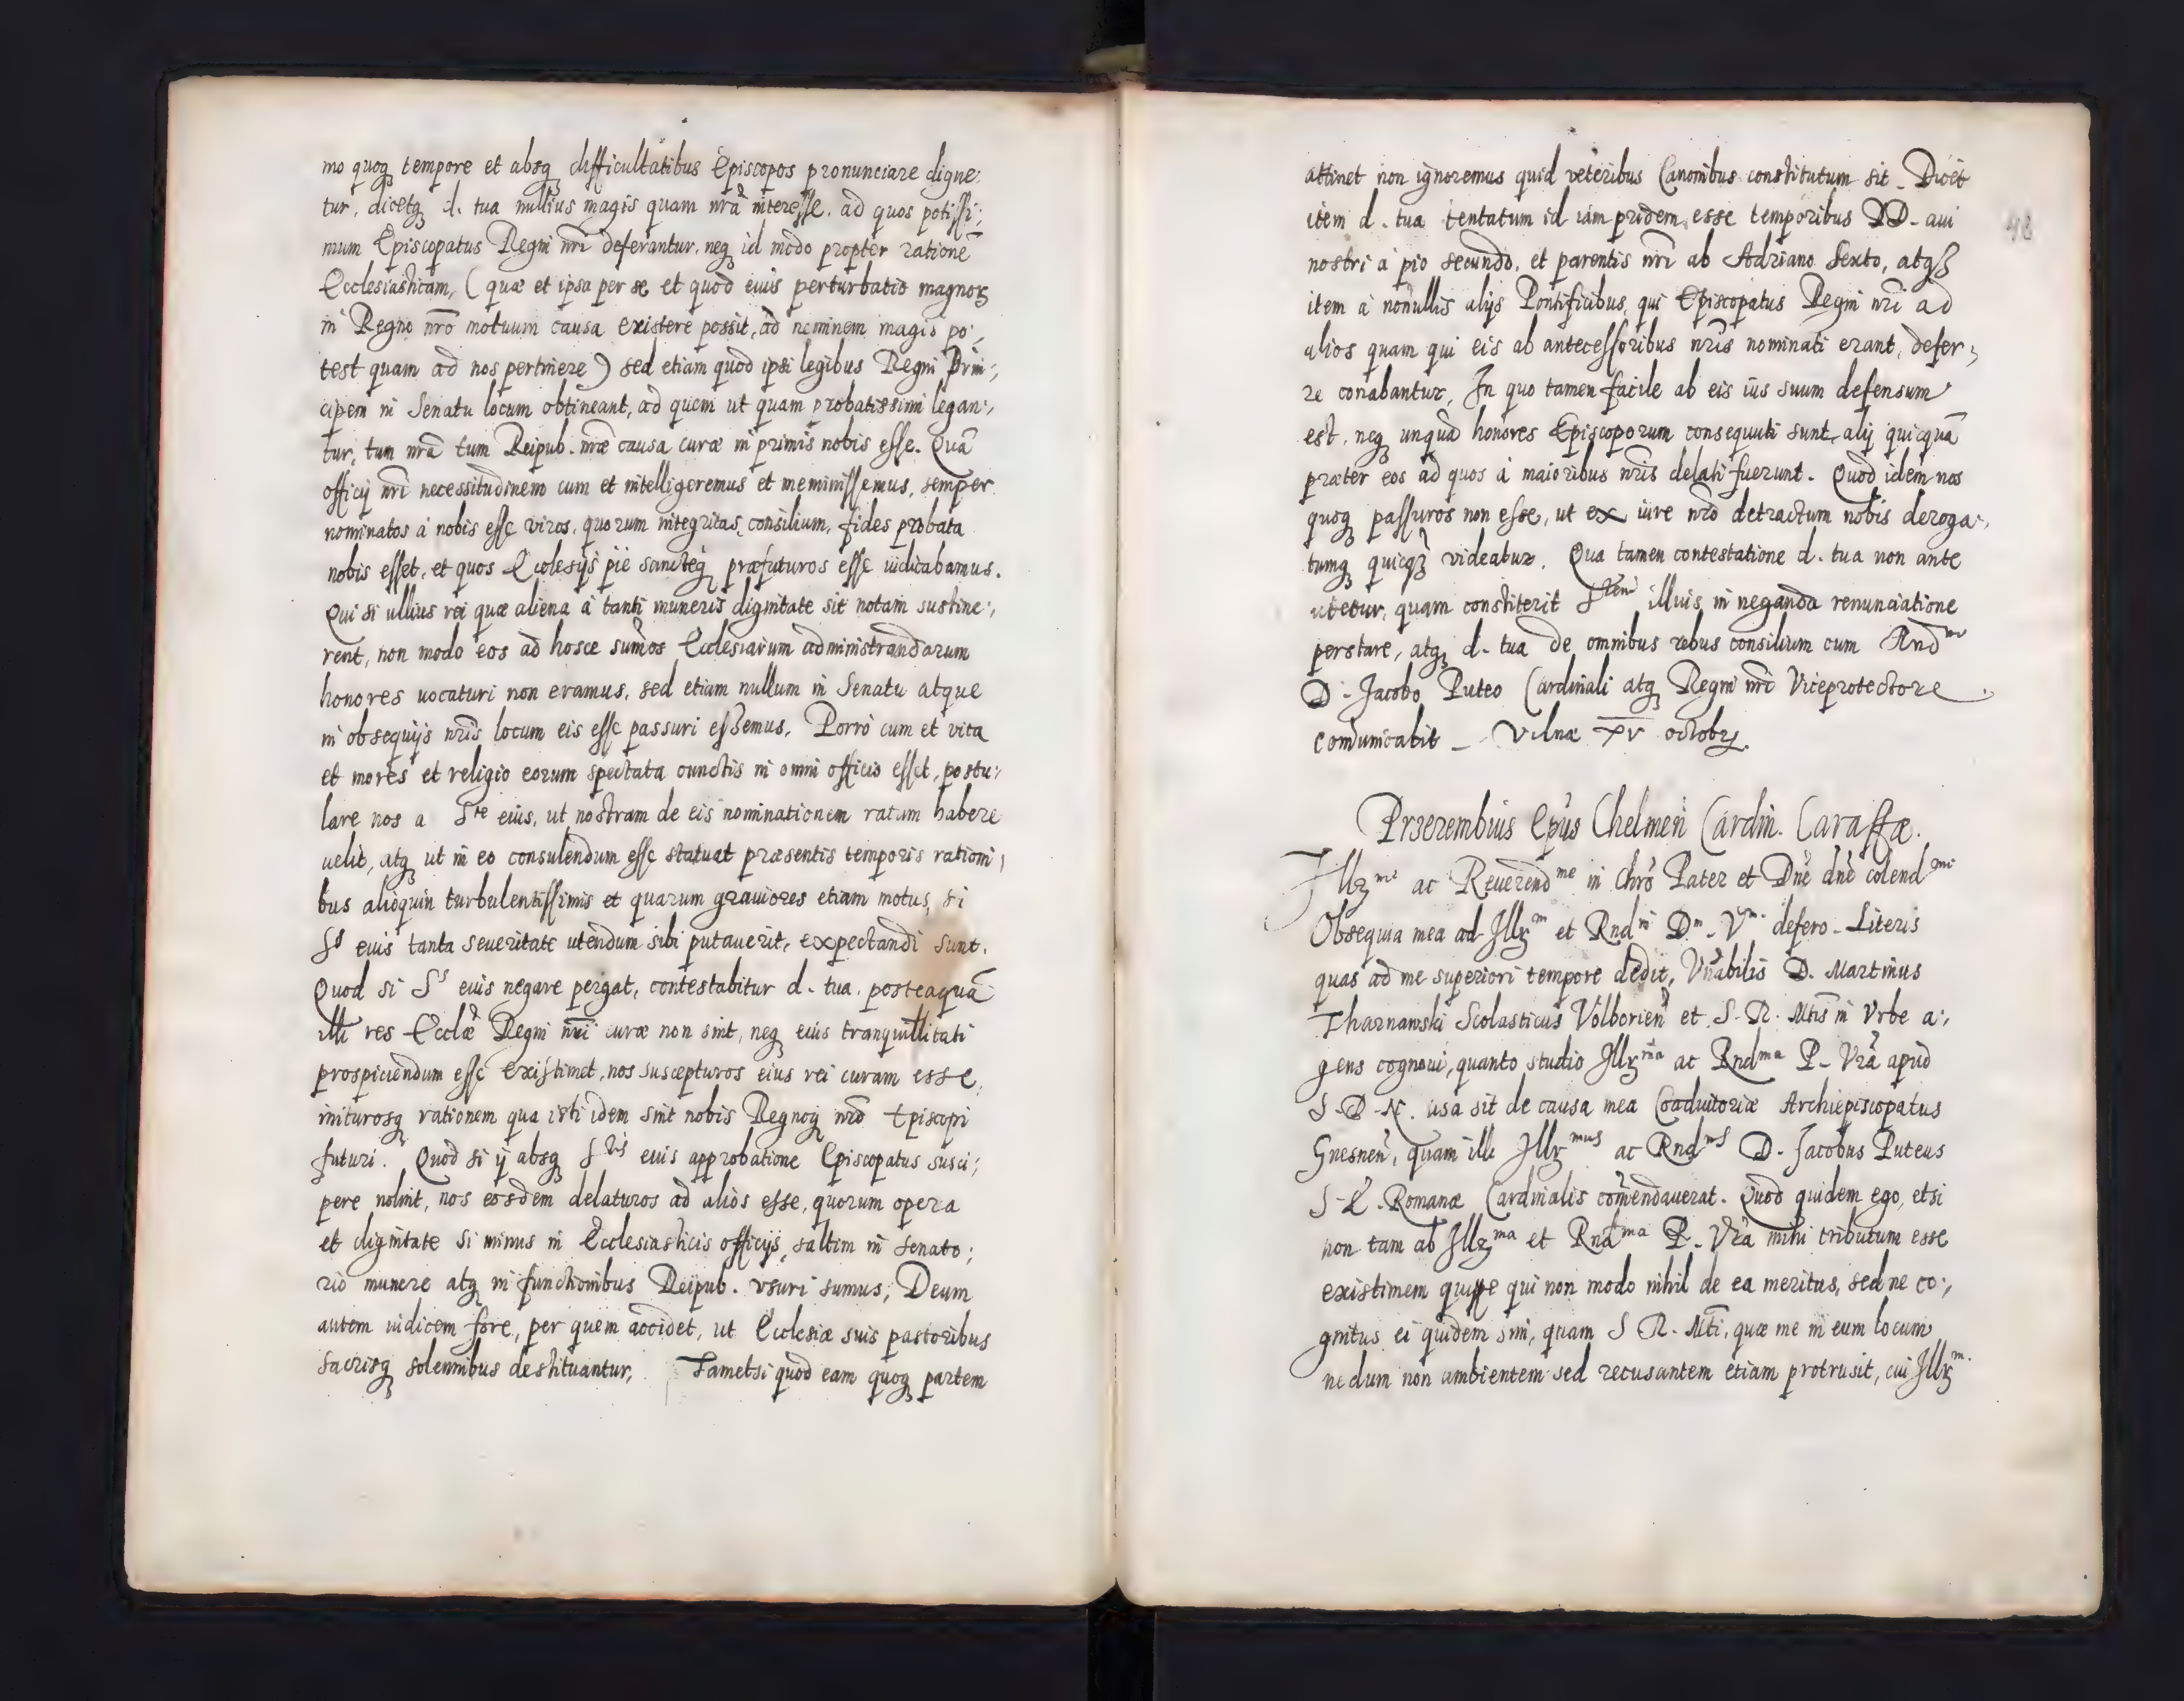 mo quoq tempore et absq difficultatibus Episcopos pronunciare digne:
tur, dicetq d. tua nullius magis quam nrã interesse, ad quos potissi:
mum Episcopatus Regni nri deferantur, neq id modo propter rationẽ
Ecclesiasticam, (quæ et ipsa per se et quod eius perturbatio magnoꝝ
in Regno nrõ motuum causa existere possit, ad neminem magis po:
test quam ad nos pertinere) sed etiam quod ipsi legibus Regni Prin:
cipem in Senatu locum obtineant, ad quem ut quam probatissimi legan:
tur, tum nrã tum Reipub. nræ causa curæ in primis nobis esse. Quã
officij nri necessitudinem cum et intelligeremus et meminissemus, semper
nominatos à nobis esse viros, quorum integritas, consilium, fides probata
nobis esset, et quos Ecclesijs pie sancteq præfuturos esse iudicabamus.
Qui si ullius rei quæ aliena à tanti muneris dignitate sit notam sustine:
rent, non modo eos ad hosce sum̃os Ecclesiarum administrandarum
honores uocaturi non eramus, sed etiam nullum in Senatu atque
in obsequijs nris locum eis esse passuri essemus. Porrò cum et vita
et mores et religio eorum spectata cunctis in omni officio esset, postu:
lare nos a Sᵗᵉ eius, ut nostram de eis nominationem ratam habere
uelit, atq ut in eo consulendum esse statuat præsentis temporis rationi
bus alioquin turbulentissimis et quarum grauiores etiam motus, si
Sˢ eius tanta seueritate utendum sibi putauerit, expectandi sunt.
Quod si Sˢ eius negare pergat, contestabitur d. tua, posteaquã
illi res Ecclæ Regni nri curæ non sint, neq eius tranquillitati
prospiciendum esse existimet, nos suscepturos eius rei curam esse,
initurosq rationem qua isti idem sint nobis Regnoq nrõ Episcopi
futuri. Quod si ij absq Sᵗⁱˢ eius approbatione Episcopatus susci:
pere nolint, nos eosdem delaturos ad alios esse, quorum opera
et dignitate si minus in Ecclesiasticis officijs, saltim in senato:
rio munere atq in functionibus Reipub. vsuri sumus, Deum
autem iudicem fore, per quem accidet, ut Ecclesiæ suis pastoribus
sacrisq solennibus destituantur, Tametsi quod eam quoq partem
48
attinet non ignoremus quid veteribus Canonibus constitutum sit. Dicet
item d. tua tentatum id iam pridem esse temporibus DD. aui
nostri a pio secundo, et parentis nri ab Adriano Sexto, atqꝫ
item à nonullis alijs Pontificibus, qui Episcopatus Regni nri ad
alios quam qui eis ab antecessoribus nris nominati erant, defer:
re conabantur, In quo tamen facile ab eis ius suum defensum
est, neq unquã honores Episcoporum consequuti sunt alij quicquã
præter eos ad quos à maioribus nris delati fuerunt. Quod idem nos
quoq passuros non esse, ut ex iure nrõ detractum nobis deroga:
tumq quicq̃ videatur. Qua tamen contestatione d. tua non ante
utetur, quam constiterit Sᵗᵉᵐ illius in neganda renunciatione
perstare, atq d. tua de omnibus rebus consilium cum Rndᵐᵒ
D. Jacobo Puteo Cardinali atq Regni nri Viceprotectore
com̃unicabit _ Vilnæ XV octobr.
Przerembius Ep̃us Chelmeñ Cardin. Caraffæ.
Illrᵐᵉ ac Reuerendᵐᵉ in Chrõ Pater et Dnẽ dnẽ colendᵐᵉ
Obsequia mea ad Illrᵐ et Rndᵐ Dⁿ. Vᵐ. defero. Literis
quas ad me superiori tempore dedit, Vñabilis D. Martinus
Tharnawski Scolasticus Volborieñ et S. R. Mtis in Vrbe a:
gens cognoui, quanto studio Illrᵐᵃ ac Rndᵐᵃ P. Vrã apud
S. D. N. usa sit de causa mea Coadiutoriæ Archiepiscopatus
Gnesneñ, quam illi Illrᵐᵘˢ ac Rndᵐˢ D. Jacobus Puteus
S. E. Romanæ Cardinalis com̃endauerat. Quod quidem ego, etsi
non tam ab Illrᵐᵃ et Rndᵐᵃ P. Vrã mihi tributum esse
existimem quippe qui non modo nihil de ea meritus, sed ne co:
gnitus ei quidem sim, quam S R. Mti, quæ me in eum locum
nedum non ambientem sed recusantem etiam protrusit, cui Illrᵐ.